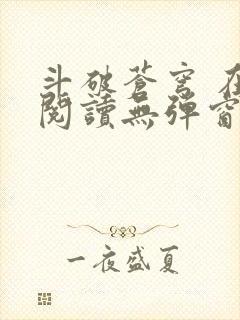 斗破蒼穹 在
閱讀無彈窗
一夜盛夏